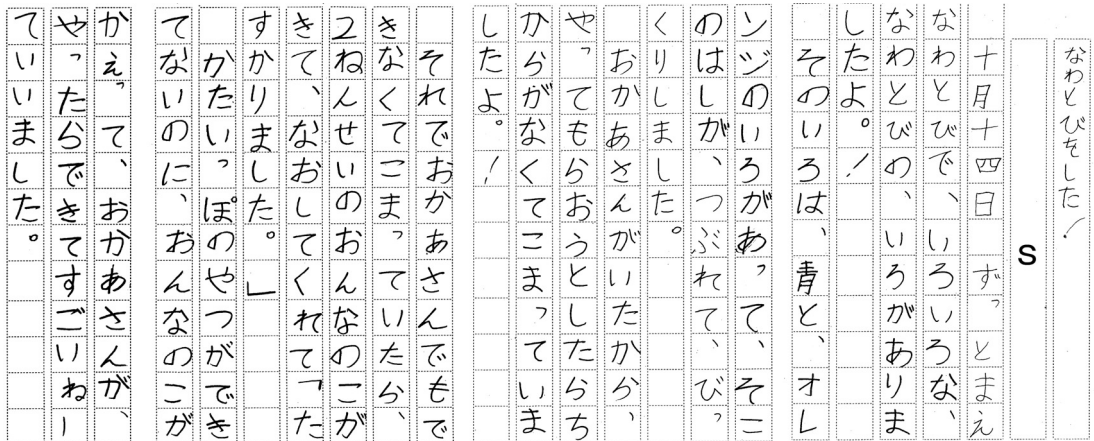 なわとびをした!
S
十月十四日 ずっとまえ
なわとびで、いろいろな、
なわとびの、いろがありま
したよ。!
そのいろは、青と、オレ
ンジのいろがあって、そこ
のはしが、つぶれて、びっ
くりしました。
おかあさんがいたから、
やってもらおうとしたらち
からがなくてこまっていま
したよ。!
それでおかあさんでもで
きなくてこまっていたら、
2ねんせいのおんなのこが
きて、なおしてくれて「た
すかりました。」
かたいっぽのやつができ
てないのに、おんなのこが
かえって、おかあさんが、
やったらできてすごいねー
ていいました。